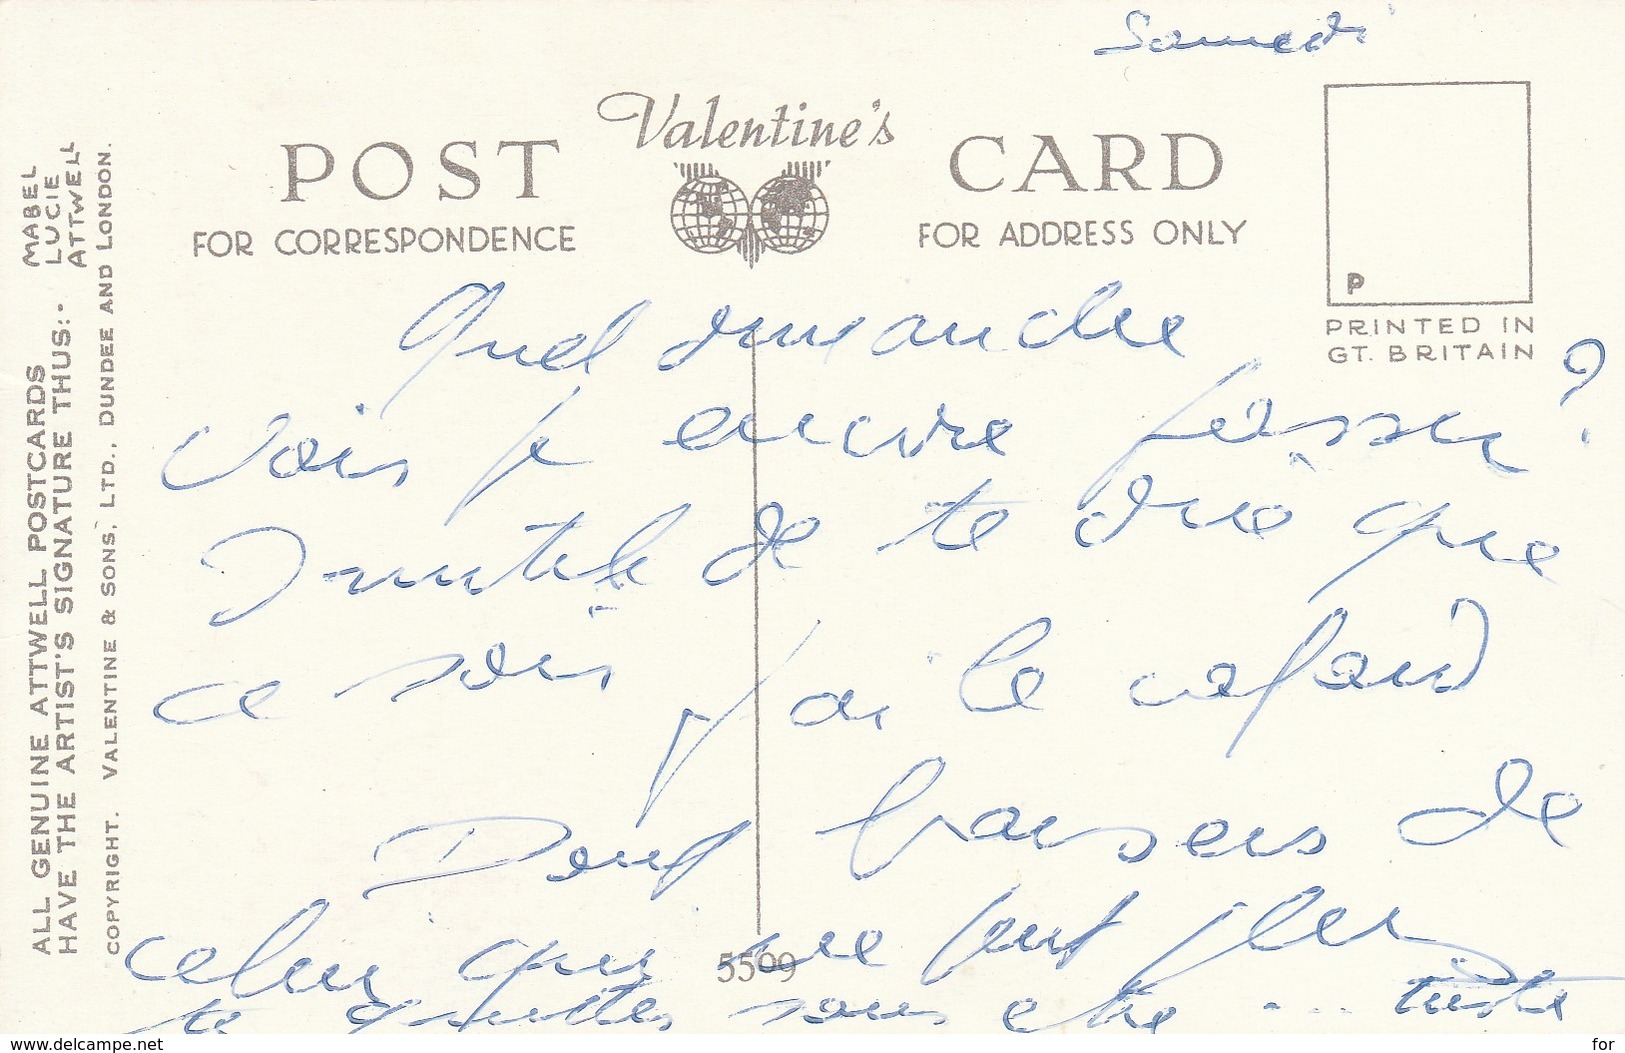 Samedi
Valentine's
POST CARD
FOR CORRESPONDENCE
FOR ADDRESS ONLY
P
PRINTED IN
GT. BRITAIN
MABEL
LUCIE
ATTWELL
ALL GENUINE ATTWELL POSTCARDS
HAVE THE ARTIST'S SIGNATURE THUS:-
COPYRIGHT. VALENTINE & SONS, LTD., DUNDEE AND LONDON.
Quel dimanche
vais je encore passer ?
Inutile de te dire que
ce soir j'ai le cafard
Doux baisers de
celui qui ne peut plus
te quitter sans être ... triste
5599
delcampe.net
for